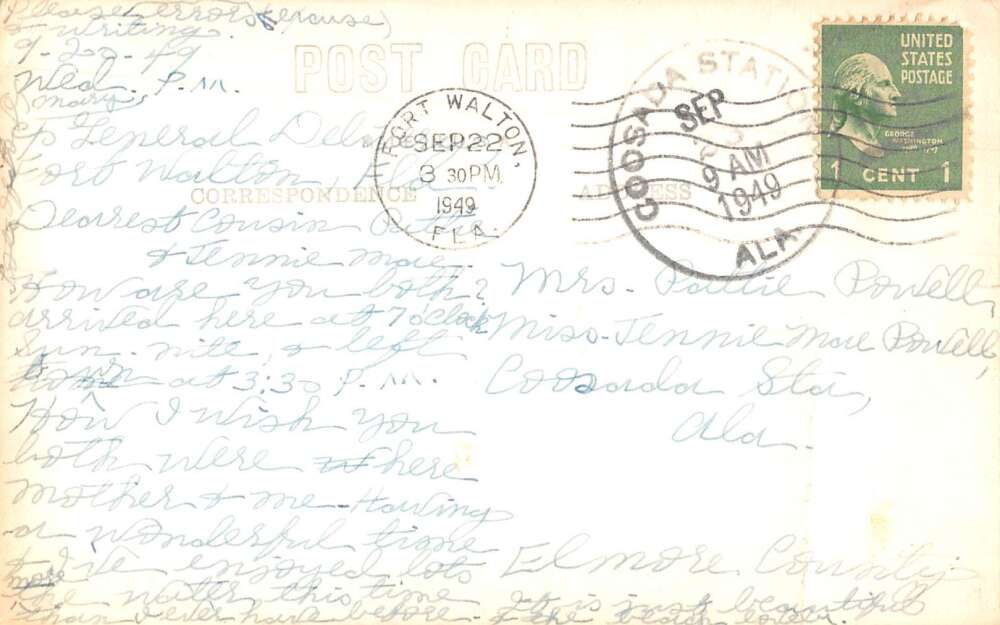 Please errors (excuse)
& writing.
9-20-49
Wed. P.M.
Mary,
℅ General
Fort Walton, Fla
Dearest Cousin Pattie
& Jennie Mae.
How are you both?
arrived here at 7 o'clock
Sun. nite, & left
town at 3:30 P.M.
How I wish you
both were here
Mother & me. Having
a wonderful time
I've enjoyed lots
more
the water this time
than I ever have before. It is just beautiful
& the beach
POST CARD
CORRESPONDENCE
ADDRESS
FORT WALTON,
SEP 22
3 30 PM
1949
FLA.
COOSADA STATION
SEP
9 AM
1949
ALA.
UNITED
STATES
POSTAGE
GEORGE
WASHINGTON
1 CENT 1
Mrs. Pattie Powell,
Miss. Jennie Mae Powell,
Coosada Sta,
Ala.
Elmore County